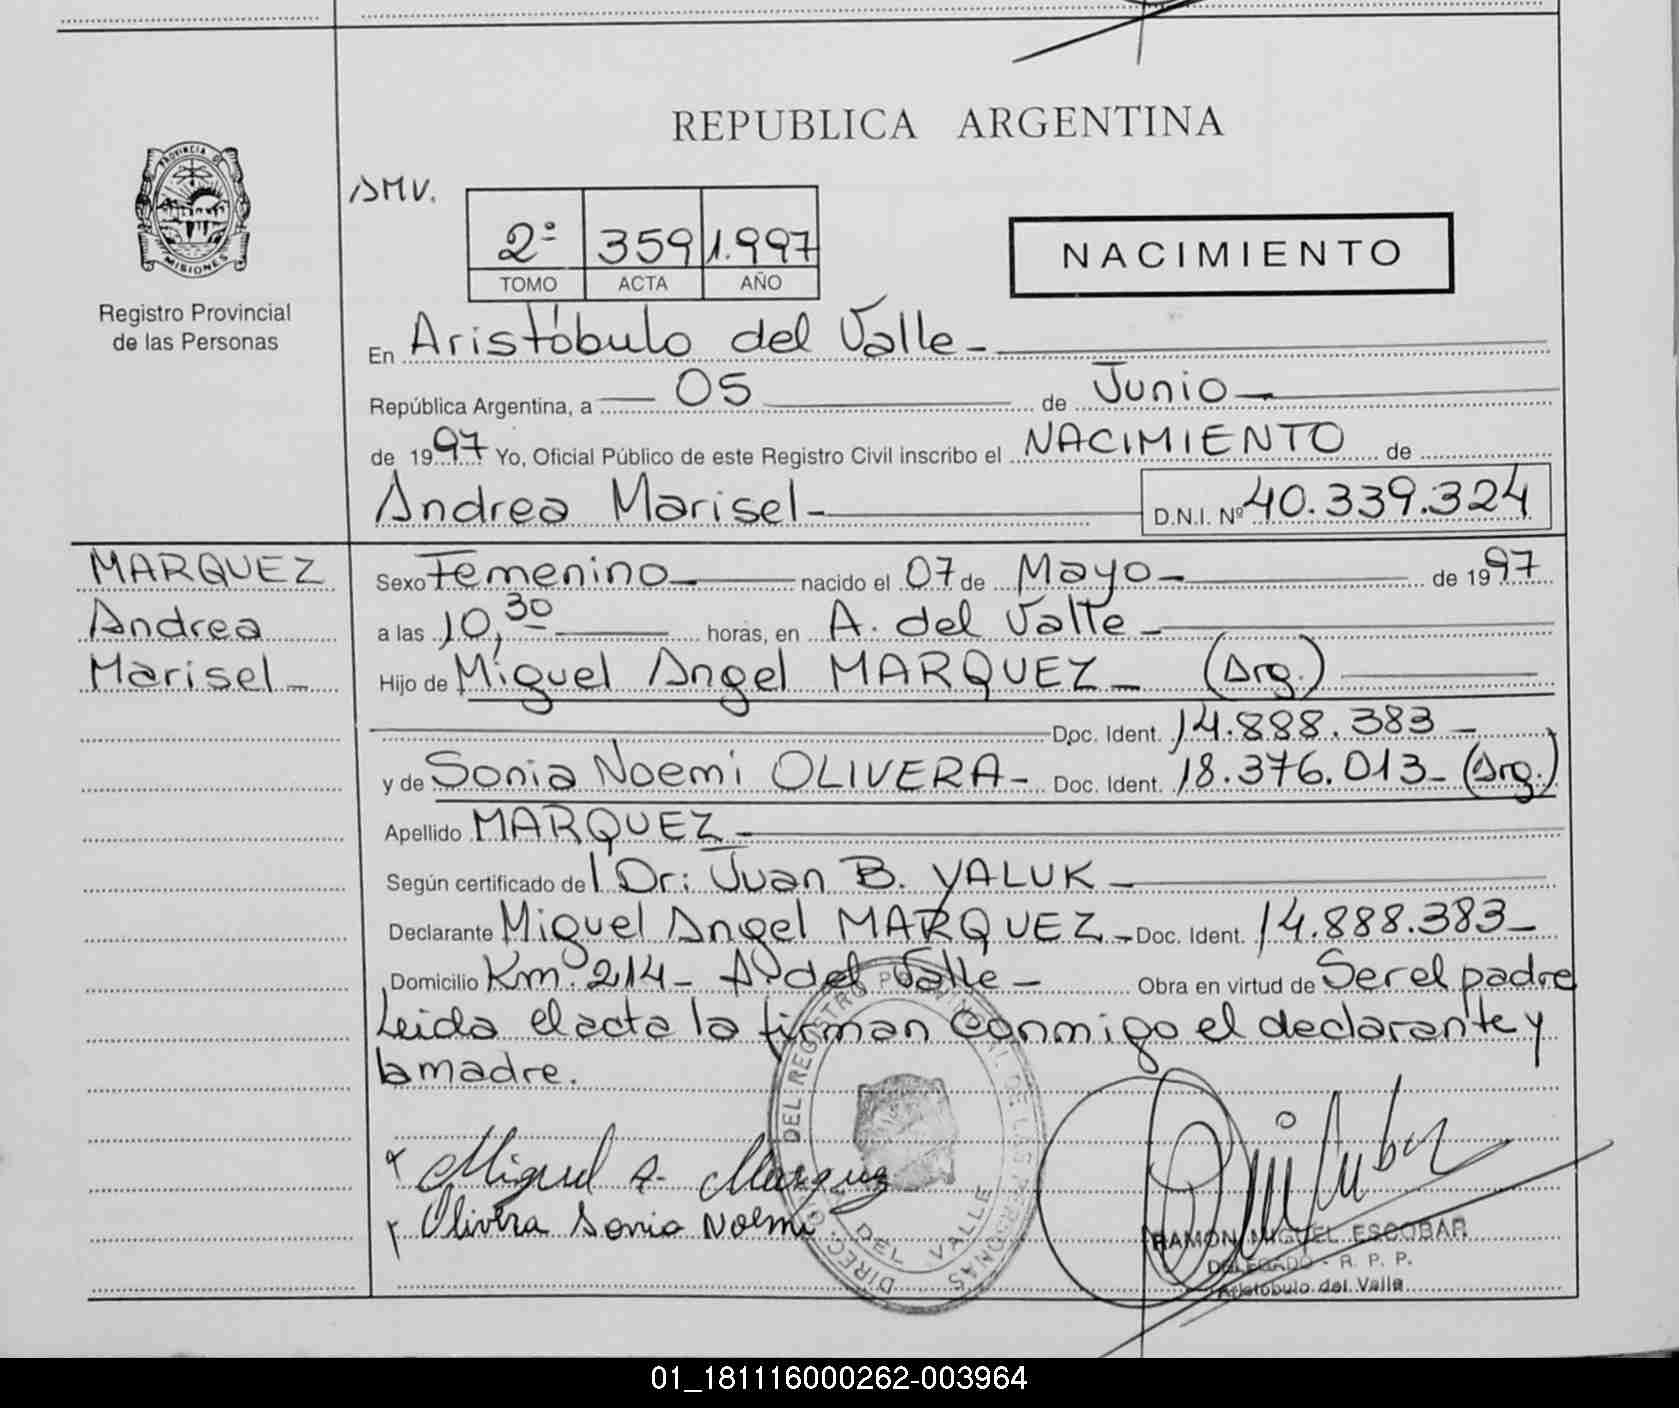 REPUBLICA ARGENTINA
PROVINCIA DE
MISIONES
Registro Provincial
de las Personas
AMV.
2º 359 1.997
TOMO ACTA AÑO
NACIMIENTO
En Aristóbulo del Valle-
República Argentina, a 05 de Junio
de 1997 Yo, Oficial Público de este Registro Civil inscribo el NACIMIENTO de
Andrea Marisel- D.N.I. Nº 40.339.324
MARQUEZ
Andrea
Marisel-
Sexo Femenino- nacido el 07 de Mayo- de 1997
a las 10,30 horas, en A. del Valle-
Hijo de Miguel Angel MARQUEZ- (Arg.)
Doc. Ident. 14.888.383-
y de Sonia Noemi OLIVERA- Doc. Ident. 18.376.013- (Arg.)
Apellido MARQUEZ-
Según certificado del Dr: Juan B. YALUK-
Declarante Miguel Angel MARQUEZ- Doc. Ident. 14.888.383-
Domicilio Km. 214- A. del Valle- Obra en virtud de Ser el padre
Leida el acta la firman conmigo el declarante y
la madre.
Miguel A. Marquez
Olivera Sonia Noemi
DIREC. G. DEL REGISTRO PROVINCIAL DE LAS PERSONAS
DEL VALLE
RAMON MIGUEL ESCOBAR
DELEGADO - R. P. P.
Aristóbulo del Valle
01_181116000262-003964